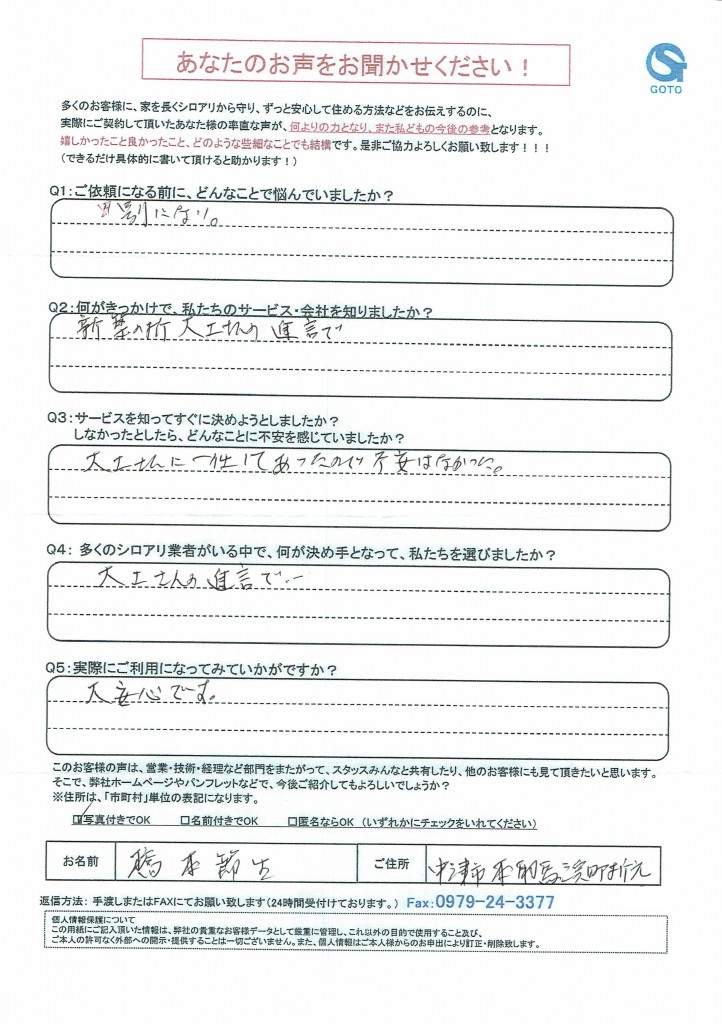 あなたのお声をお聞かせください！
GOTO
多くのお客様に、家を長くシロアリから守り、ずっと安心して住める方法などをお伝えするのに、
実際にご契約して頂いたあなた様の率直な声が、何よりの力となり、また私どもの今後の参考となります。
嬉しかったこと良かったこと、どのような些細なことでも結構です。是非ご協力よろしくお願い致します！！！
（できるだけ具体的に書いて頂けると助かります！）
Q1：ご依頼になる前に、どんなことで悩んでいましたか？
別になし。
Q2：何がきっかけで、私たちのサービス・会社を知りましたか？
新築の折大工さんの進言で
Q3：サービスを知ってすぐに決めようとしましたか？
しなかったとしたら、どんなことに不安を感じていましたか？
大工さんに一任してあったので不安はなかった。
Q4： 多くのシロアリ業者がいる中で、何が決め手となって、私たちを選びましたか？
大工さんの進言で
Q5：実際にご利用になってみていかがですか？
大安心です。
このお客様の声は、営業・技術・経理など部門をまたがって、スタッスみんなと共有したり、他のお客様にも見て頂きたいと思います。
そこで、弊社ホームページやパンフレットなどで、今後ご紹介してもよろしいでしょうか？
※住所は、「市町村」単位の表記になります。
☑写真付きでOK □名前付きでOK □匿名ならOK （いずれかにチェックをいれてください）
お名前 橋本節生 ご住所 中津市本耶馬渓町折元
返信方法： 手渡しまたはFAXにてお願い致します（24時間受付けております。） Fax：0979-24-3377
個人情報保護について
この用紙にご記入頂いた情報は、弊社の貴重なお客様データとして厳重に管理し、これ以外の目的で使用すること及び、
ご本人の許可なく外部への開示・提供することは一切ございません。また、個人情報はご本人様からのお申出により訂正・削除致します。